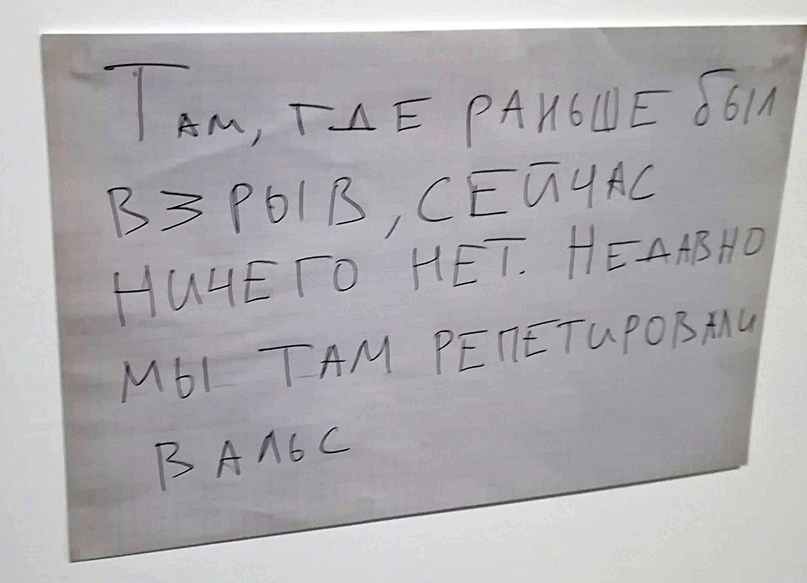 Там, где раньше был
взрыв, сейчас
ничего нет. Недавно
мы там репетировали
вальс